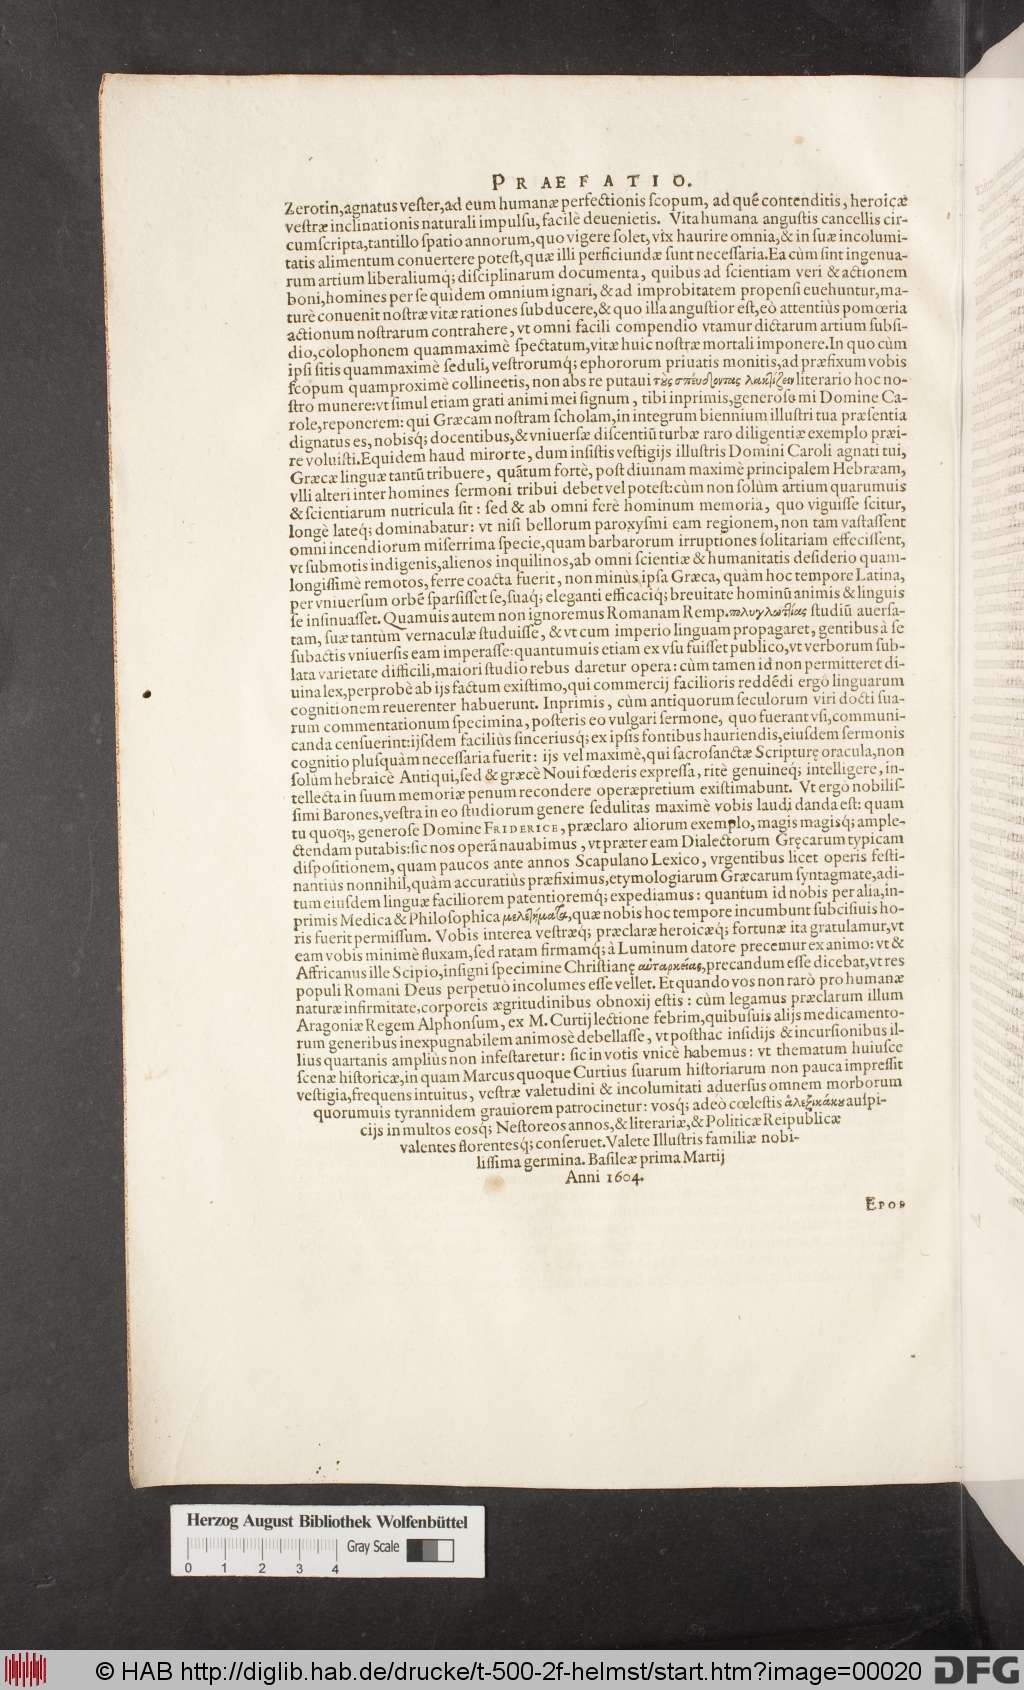 PRAEFATIO.
Zerotin, agnatus vester, ad eum humanæ perfectionis scopum, ad quē contenditis, heroicæ
vestræ inclinationis naturali impulsu, facilè deuenietis. Vita humana angustis cancellis cir-
cumscripta, tantillo spatio annorum, quo vigere solet, vix haurire omnia, & in suæ incolumi-
tatis alimentum conuertere potest, quæ illi perficiundæ sunt necessaria. Ea cùm sint ingenua-
rum artium liberaliumq; disciplinarum documenta, quibus ad scientiam veri & actionem
boni, homines per se quidem omnium ignari, & ad improbitatem propensi euehuntur, ma-
turè conuenit nostræ vitæ rationes subducere, & quo illa angustior est, eò attentiùs pomœria
actionum nostrarum contrahere, vt omni facili compendio vtamur dictarum artium subsi-
dio, colophonem quammaximè spectatum, vitæ huic nostræ mortali imponere. In quo cùm
ipsi sitis quammaximè seduli, vestrorumq; ephororum priuatis monitis, ad præfixum vobis
scopum quamproximè collineetis, non abs re putaui τοὺς σπεύδοντας λακτίζειν literario hoc no-
stro munere: vt simul etiam grati animi mei signum, tibi inprimis, generose mi Domine Ca-
role, reponerem: qui Græcam nostram scholam, in integrum biennium illustri tua præsentia
dignatus es, nobisq; docentibus, & vniuersæ discentiū turbæ raro diligentiæ exemplo præi-
re voluisti. Equidem haud miror te, dum insistis vestigijs illustris Domini Caroli agnati tui,
Græcæ linguæ tantū tribuere, quātum fortè, post diuinam maximè principalem Hebræam,
vlli alteri inter homines sermoni tribui debet vel potest: cùm non solùm artium quarumuis
& scientiarum nutricula sit: sed & ab omni ferè hominum memoria, quo viguisse scitur,
longè lateq; dominabatur: vt nisi bellorum paroxysmi eam regionem, non tam vastassent
omni incendiorum miserrima specie, quam barbarorum irruptiones solitariam effecissent,
vt submotis indigenis, alienos inquilinos, ab omni scientiæ & humanitatis desiderio quam-
longissimè remotos, ferre coacta fuerit, non minùs ipsa Græca, quàm hoc tempore Latina,
per vniuersum orbē sparsisset se, suaq; eleganti efficaciq; breuitate hominū animis & linguis
se insinuasset. Quamuis autem non ignoremus Romanam Remp. πολυγλωττίας studiū auersa-
tam, suæ tantùm vernaculæ studuisse, & vt cum imperio linguam propagaret, gentibus à se
subactis vniuersis eam imperasse: quantumuis etiam ex vsu fuisset publico, vt verborum sub-
lata varietate difficili, maiori studio rebus daretur opera: cùm tamen id non permitteret di-
uina lex, perprobè ab ijs factum existimo, qui commercij facilioris reddēdi ergò linguarum
cognitionem reuerenter habuerunt. Inprimis, cùm antiquorum seculorum viri docti sua-
rum commentationum specimina, posteris eo vulgari sermone, quo fuerant vsi, communi-
canda censuerint: ijsdem faciliùs sinceriusq; ex ipsis fontibus hauriendis, eiusdem sermonis
cognitio plusquàm necessaria fuerit: ijs vel maximè, qui sacrosanctæ Scripturę oracula, non
solùm hebraicè Antiqui, sed & græcè Noui fœderis expressa, ritè genuineq; intelligere, in-
tellecta in suum memoriæ penum recondere operæpretium existimabunt. Vt ergò nobilis-
simi Barones, vestra in eo studiorum genere sedulitas maximè vobis laudi danda est: quam
tu quoq;, generose Domine FRIDERICE, præclaro aliorum exemplo, magis magisq; ample-
ctendam putabis: sic nos operā nauabimus, vt præter eam Dialectorum Gręcarum typicam
dispositionem, quam paucos ante annos Scapulano Lexico, vrgentibus licet operis festi-
nantiùs nonnihil, quàm accuratiùs præfiximus, etymologiarum Græcarum syntagmate, adi-
tum eiusdem linguæ faciliorem patentioremq; expediamus: quantum id nobis per alia, in-
primis Medica & Philosophica μελετήματα, quæ nobis hoc tempore incumbunt subcisiuis ho-
ris fuerit permissum. Vobis interea vestræq; præclaræ heroicæq; fortunæ ita gratulamur, vt
eam vobis minimè fluxam, sed ratam firmamq; à Luminum datore precemur ex animo: vt &
Affricanus ille Scipio, insigni specimine Christianę αὐταρκείας, precandum esse dicebat, vt res
populi Romani Deus perpetuò incolumes esse vellet. Et quando vos non rarò pro humanæ
naturæ infirmitate, corporeis ægritudinibus obnoxij estis: cùm legamus præclarum illum
Aragoniæ Regem Alphonsum, ex M. Curtij lectione febrim, quibusuis alijs medicamento-
rum generibus inexpugnabilem animosè debellasse, vt posthac insidijs & incursionibus il-
lius quartanis ampliùs non infestaretur: sic in votis vnicè habemus: vt thematum huiusce
scenæ historicæ, in quam Marcus quoque Curtius suarum historiarum non pauca impressit
vestigia, frequens intuitus, vestræ valetudini & incolumitati aduersus omnem morborum
quorumuis tyrannidem grauiorem patrocinetur: vosq; adeò cœlestis ἀλεξικάκου auspi-
cijs in multos eosq; Nestoreos annos, & literariæ, & Politicæ Reipublicæ
valentes florentesq; conseruet. Valete Illustris familiæ nobi-
lissima germina. Basileæ prima Martij
Anni 1604.
EPOS
Herzog August Bibliothek Wolfenbüttel
Gray Scale
0 1 2 3 4
© HAB http://diglib.hab.de/drucke/t-500-2f-helmst/start.htm?image=00020
DFG